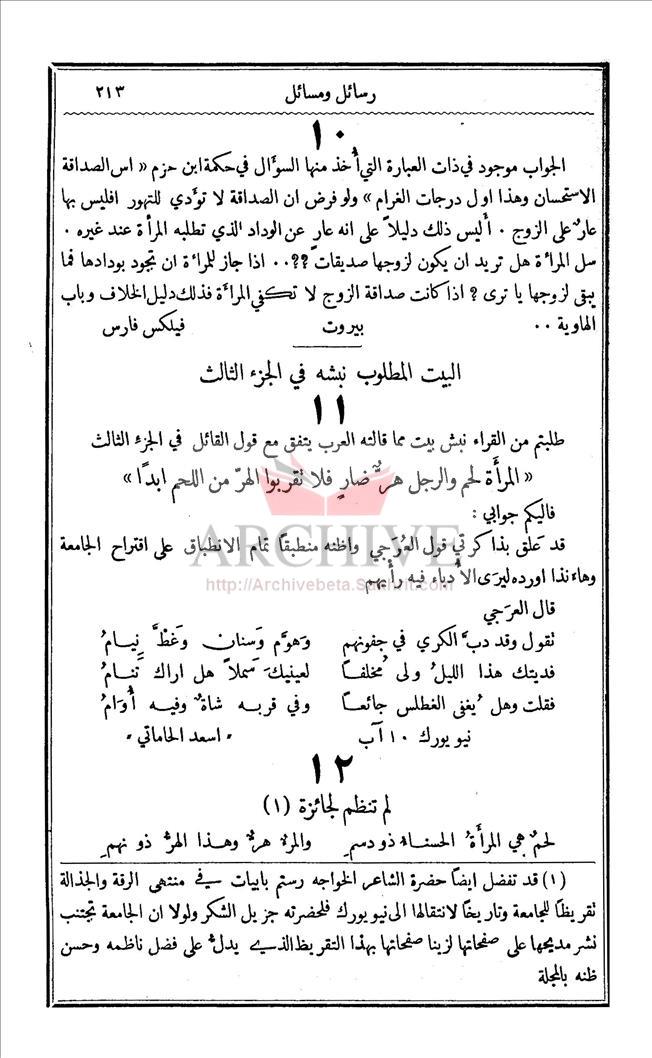 رسائل ومسائل ٢١٣
١٠
الجواب موجود في ذات العبارة التي أُخذ منها السؤال في حكمة ابن حزم « اس الصداقة
الاستحسان وهذا اول درجات الغرام » ولو فرض ان الصداقة لا تؤدي للتهور افليس بها
عارٌ على الزوج ٠ أليس ذلك دليلاً على انه عارٍ عن الوداد الذي تطلبه المرأة عند غيره ٠
سل المرأة هل تريد ان يكون لزوجها صديقات ؟؟٠٠ اذا جاز للمرأة ان تجود بودادها فما
يبقى لزوجها يا ترى ؟ اذا كانت صداقة الزوج لا تكفي المرأة فذلك دليل الخلاف وباب
الهاوية ٠٠ بيروت فيلكس فارس
البيت المطلوب نبشه في الجزء الثالث
١١
طلبتم من القراء نبش بيت مما قالته العرب يتفق مع قول القائل في الجزء الثالث
« المرأة لحم والرجل هرٌّ ضارٍ فلا تقربوا الهرّ من اللحم ابدًا »
فاليكم جوابي :
ARCHIVE
قد عَلق بذاكرتي قول العَرَجي واظنه منطبقًا تمام الانطباق على اقتراح الجامعة
http://Archivebeta.Sakhrit.com
وهاءنذا اورده ليرَى الأدباء فيه رأيهم
قال العرَجي
تقول وقد دبَّ الكرى في جفونهم وهوَّم وَسنان وغطَّ نيامُ
فديتك هذا الليلُ ولى مُخلفًا لعينيكَ سملاً هل اراك تنامُ
فقلت وهل يُغفى الغطلس جائعًا وفي قربه شاةٌ وفيه أُوَامُ
نيو يورك ١٠ آب ٠ اسعد الحاماتي ٠
١٢
لم تنظم لجائزة (١)
لحمٌ هي المرأةُ الحسناءُ ذو دسمٍ والمرءُ هرٌّ وهذا الهرُّ ذو نهمٍ
(١) قد تفضل ايضًا حضرة الشاعر الخواجه رستم بابيات في منتهى الرقة والجذالة
تقريظًا للجامعة وتاريخًا لانتقالها الى نيو يورك فلحضرته جزيل الشكر ولولا ان الجامعة تجتنب
نشر مديحها على صفحاتها لزينا صفحاتها بهذا التقريظ الذي يدلُّ على فضل ناظمه وحسن
ظنه بالمجلة